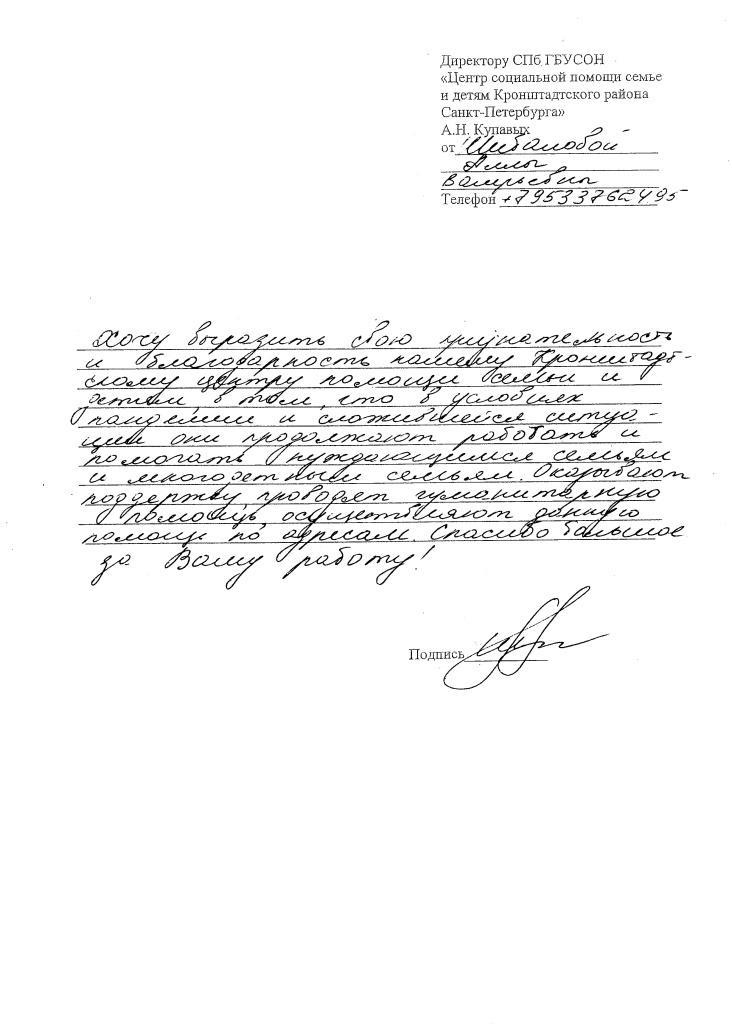 Директору СПб ГБУСОН
«Центр социальной помощи семье
и детям Кронштадтского района
Санкт-Петербурга»
А.Н. Купавых
от Шибаловой
Аллы
Валерьевны
Телефон +79533762495
Хочу выразить свою признательность
и благодарность нашему Кронштадт-
скому центру помощи семьи и
детям, в том, что в условиях
пандемии и сложившейся ситуа-
ции они продолжают работать и
помогать нуждающимся семьям
и многодетным семьям. Оказывают
поддержку, проводят гуманитарную
помощь, осуществляют данную
помощь по адресам. Спасибо большое
за Вашу работу!
Подпись